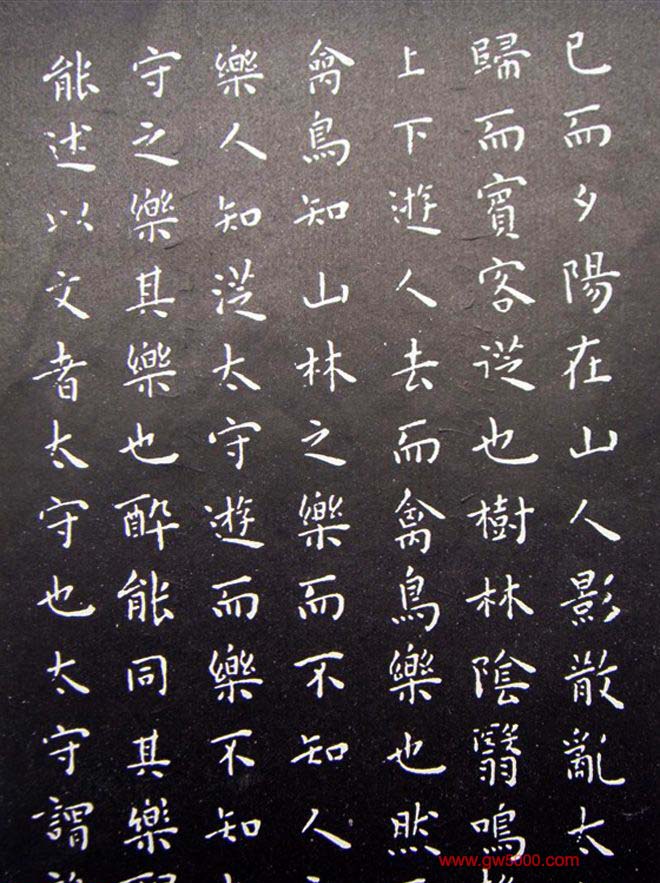 已而夕陽在山人影散亂太
歸而賓客從也樹林陰翳鳴
上下遊人去而禽鳥樂也然
禽鳥知山林之樂而不知人
樂人知從太守遊而樂不知
守之樂其樂也醉能同其樂
能述以文者太守也太守謂
www.qw5000.com